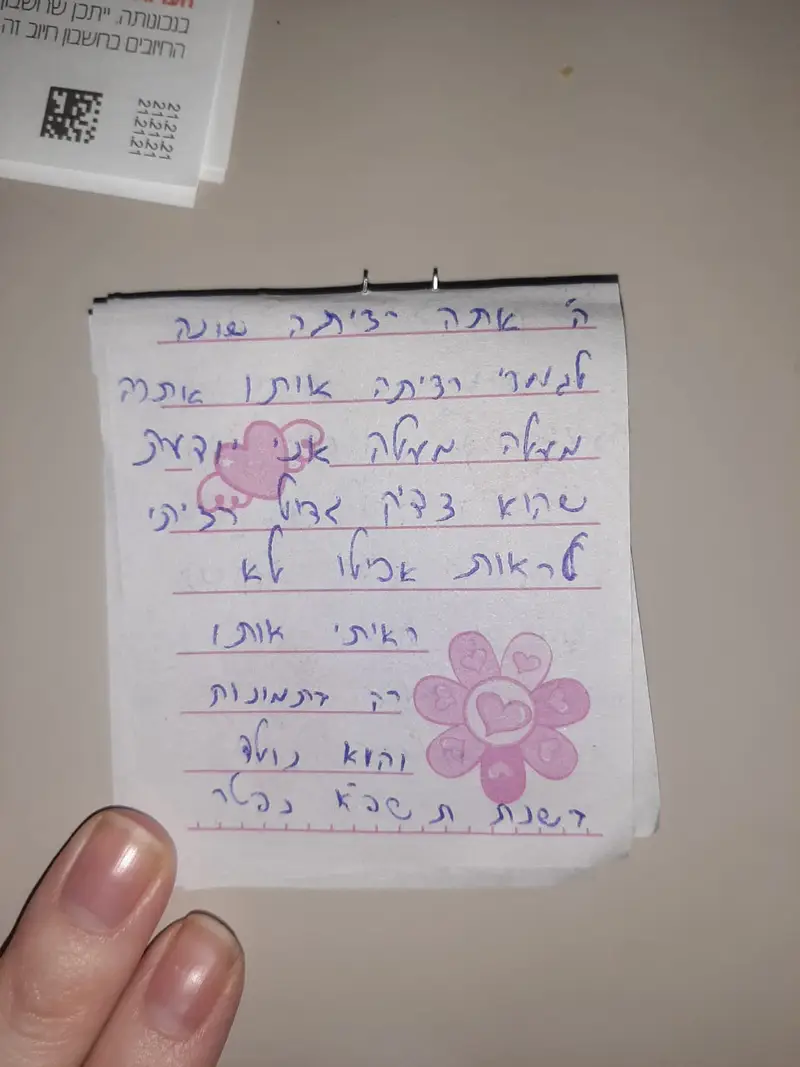 בנכונתה. ייתכן שחשבון
החיובים בחשבון חיוב זה
21 21 21
21 21 21
21 21 21
ה' אתה רציתה שונה
לגמרי רציתה אותו אתרה
מעלה מעלה אני יודעת
שהוא צדיק גדול רציתי
לראות אפילו לא
ראיתי אותו
רק בתמונות
והוא נולד
בשנת תשפ"א נפטר